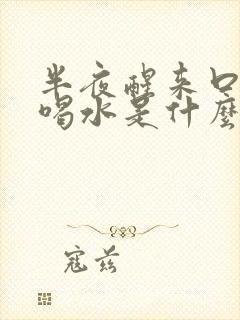 半夜醒来口
喝水是什麼
寇兹